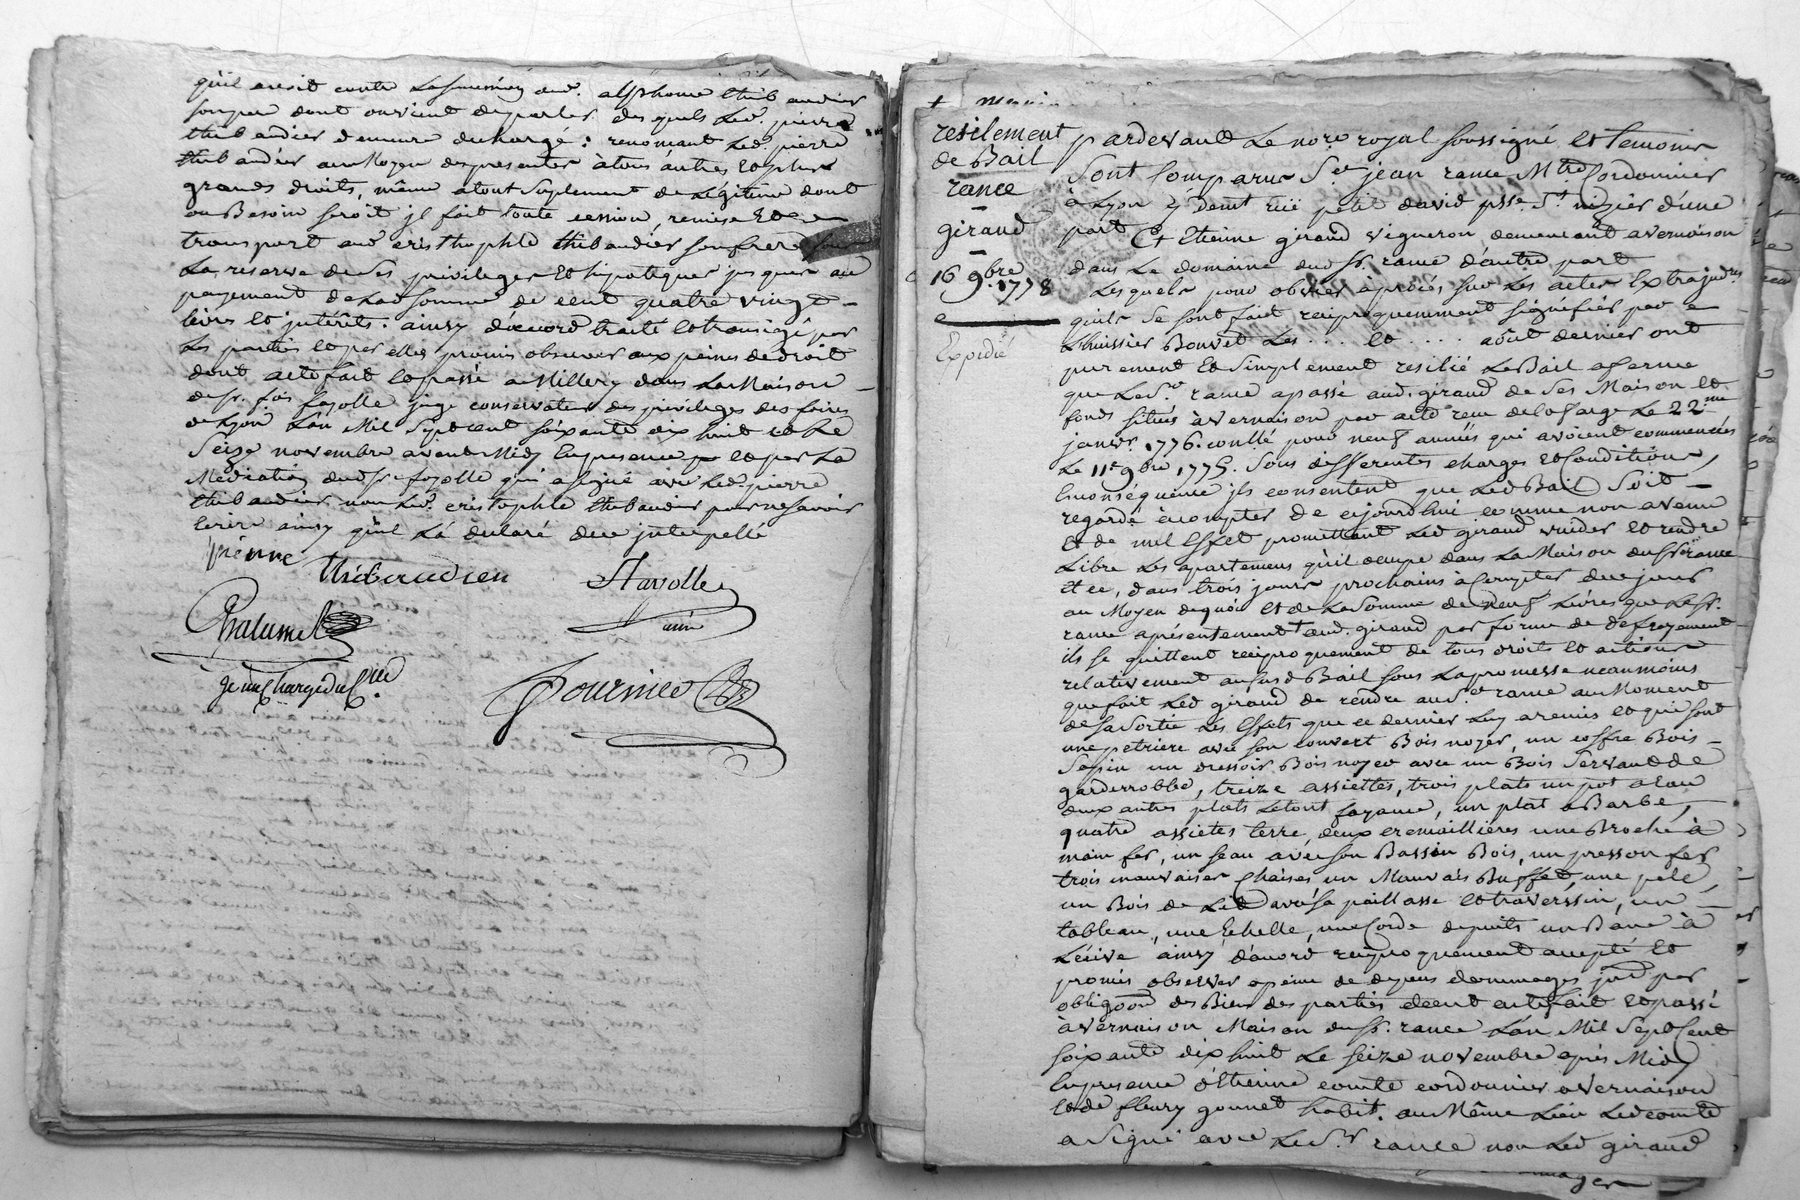 qu'il avoit contre aud. alphonse thibaudier
son pere dont on vient de parler des quels led. pierre
thibaudier demeure déchargé: renoncant led. pierre
thibaudier au Moyen des presentes à tous autres et plus
grands droits, même a tout suplement de légitime dont
au Besoin seroit il fait toute cession, remise et
transport aud. cristhophle thibaudier son frere sous
La reserve de ses privileges et hipoteques jusques au
payement de lad. somme de cent quatre vingt
livres et intérêts. ainsy d'accord traité et transigé par
les parties et par elles promis observer aux peines de droit
dont acte fait et passé a Millery dans La Maison
de sr. fois fayolle juge conservateur des privileges des foires
de Lyon L'an Mil Sept cent soixante dix huit et Le
Seize novembre avant Midy En presence et par La
Médiation dud. sr. fayolle qui a signé avec led. pierre
thibaudier non led. cristophle thibaudier pour ne savoir
Ecrire ainsy qu'il L'a declaré de ce interpellé
pierre
Thibaudier
fayolle
Chalumel
Fournier
resilement
de Bail
rance
giraud
16 9.bre 1778
Expedié
pardevant Le no.re royal soussigné et temoins
Sont Comparus S.r jean rance M.tre Cordonnier
à Lyon y dem.t rüe petit david p.sse S.t nizier d'une
part Et Etienne giraud vigneron demeurant a vernaison
dans Le domaine dud. Sr. rance d'autre part
Lesquels pour obvier à procés sur Les actes Extrajud.res
qu'ils se sont fait reciproquemment signéfiér par
L'huissier Bouvet Les ... et .... août dernier ont
purement et Simplement resilié Le Bail a ferme
que Led. S.r rance a passé aud. giraud de Ses Maison et
fonds situés à vernaison par acte reçu delafarge Le 22.me
janv.r 1776. conllé pour neuf années qui avoient commencées
Le 11.e 9bre 1775. Sous differentes charges et Conditions,
En conséquence ils consentent que Led Bail Soit
regardé à compter de cejourd'hui comme non avenu
et de nul Effet promettant Led giraud vuider et rendre
Libre Les apartemens qu'il occupe dans La Maison dud Sr rance
et ce, dans trois jours prochains à Compter de ce jour
au Moyen de quoi et de La Somme de Neuf Livres que Led Sr.
rance a présentement aud. giraud par forme de defrayement
ils se quittent reciproquement de tous droits et actions
relativement au susd Bail sous La promesse neanmoins
que fait Led giraud de rendre aud S.r rance au Moment
de sa Sortie Les Effets que ce dernier Luy a remis et qui sont
une petriere avec son couvert Bois noyer, un coffre Bois
Sapin un dressoir Bois noyer avec un Bois Servant de
garderrobbe, treize assiettes, trois plats un pot a eau
deux autres plats Le tout fayance, un plat a Barbe,
quatre assietes terre, deux cremaillieres une Broche à
main fer, un seau avec son Bassin Bois, un presson fer
trois mauvaises Chaises un Mauvais Buffet, une pele,
un Bois de Lit avec sa paillasse et traverssin, un
tableau, une Echelle, une Corde de puits un Banc à
Lécive ainsy d'accord reciproquement accepté et
promis observer a peine de depens dommages int. par
obligaon des Biens des parties dont acte fait et passé
à vernaison Maison dud Sr. rance L'an Mil Sept Cent
soixante dix huit Le seize novembre après Midy
En presence d'Etienne comte cordonnier a vernaison
et de fleury gonnet habit. au Même Lieu Led comte
a Signé avec Led S.r rance non Led giraud